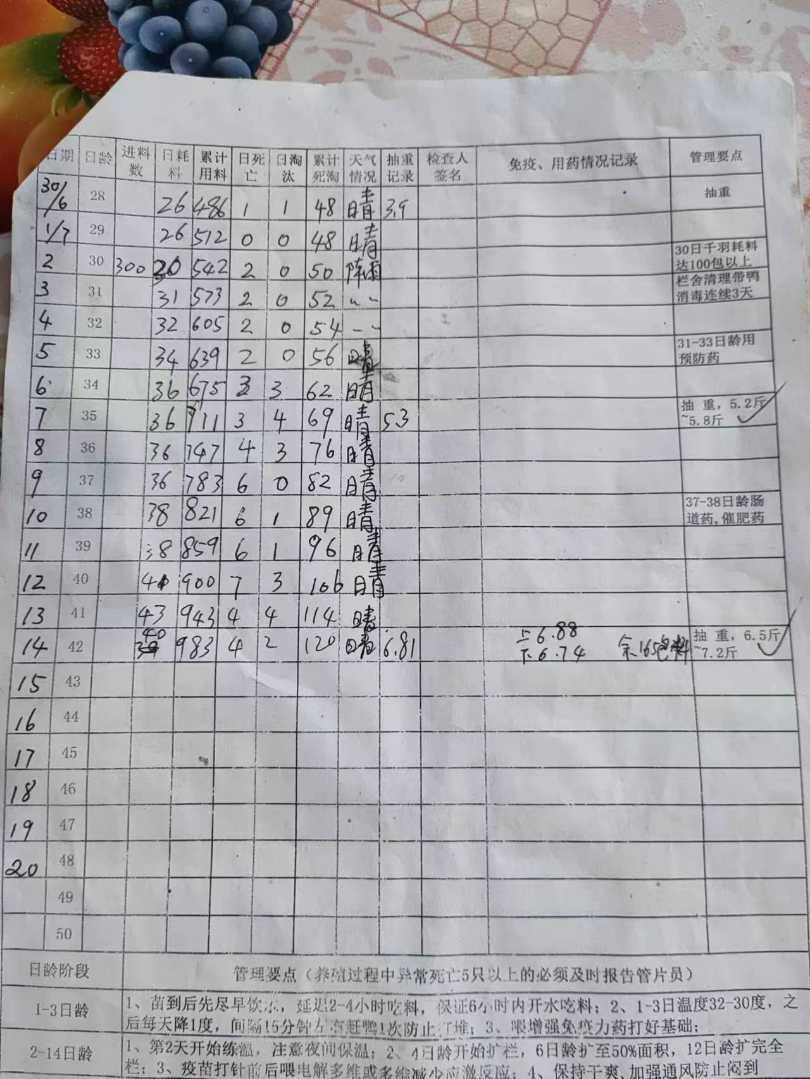 日期 日龄 进料数 日耗料 累计用料 日死亡 日淘汰 累计死淘 天气情况 抽重记录 检查人签名 免疫、用药情况记录 管理要点
30/6 28 26 486 1 1 48 晴 3.9 抽重
1/7 29 26 512 0 0 48 晴
2 30 300 30 542 2 0 50 阵雨 30日千羽耗料达100包以上
3 31 31 573 2 0 52 〃 栏舍清理带鸭消毒连续3天
4 32 32 605 2 0 54 〃
5 33 34 639 2 0 56 晴 31-33日龄用预防药
6 34 36 675 3 3 62 晴
7 35 36 711 3 4 69 晴 5.3 抽 重, 5.2斤~5.8斤
8 36 36 747 4 3 76 晴
9 37 36 783 6 0 82 晴
10 38 38 821 6 1 89 晴 37-38日龄肠道药,催肥药
11 39 38 859 6 1 96 晴
12 40 41 900 7 3 106 晴
13 41 43 943 4 4 114 晴
14 42 40 983 4 2 120 晴 6.81 上6.88 下6.74 余165包料 抽 重, 6.5斤~7.2斤
15 43
16 44
17 45
18 46
19 47
20 48
49
50
日龄阶段 管理要点（养殖过程中异常死亡5只以上的必须及时报告管片员）
1-3日龄 1、苗到后先尽早饮水, 延迟2-4小时吃料, 保证6小时内开水吃料; 2、1-3日温度32-30度, 之
后每天降1度, 间隔15分钟左右赶鸭1次防止打堆; 3、喂增强免疫力药打好基础;
2-14日龄 1、第2天开始练温, 注意夜间保温; 2、4日龄开始扩栏, 6日龄扩至50%面积, 12日龄扩完全
栏; 3、疫苗打针前后喂电解多维或多维减少应激反应; 4、保持干爽,加强通风防止闷到